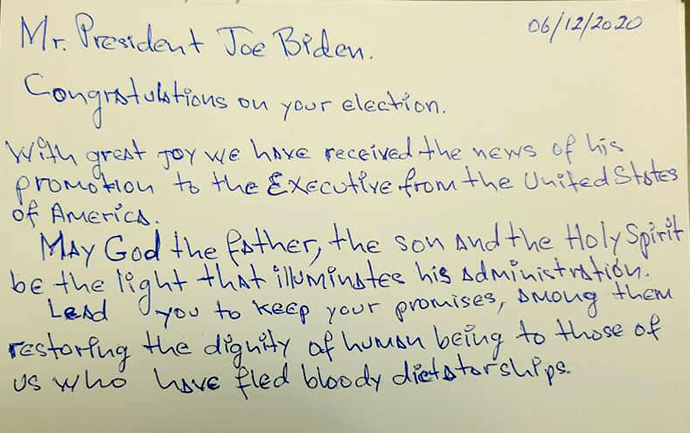 06/12/2020
Mr. President Joe Biden.
Congratulations on your election.
With great joy we have received the news of his
promotion to the Executive from the United States
of America.
May God the father, the son and the Holy Spirit
be the light that illuminates his administration.
Lead you to keep your promises, among them
restoring the dignity of human being to those of
us who have fled bloody dictatorships.